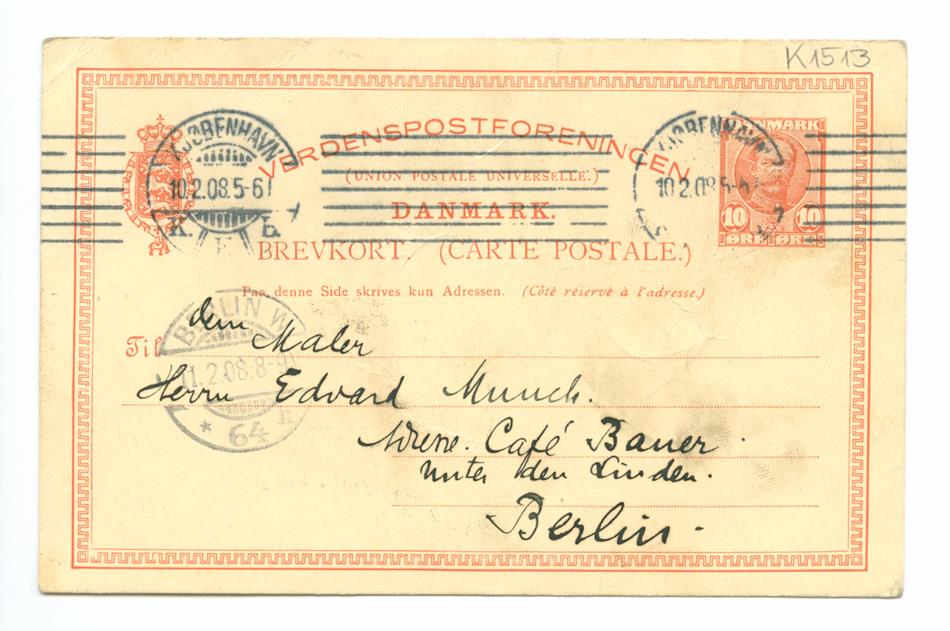 K1513
KJØBENHAVN
10.2.08.5-6
K. B.
KJØBENHAVN
10.2.08 5-6
VERDENSPOSTFORENINGEN
(UNION POSTALE UNIVERSELLE.)
DANMARK.
BREVKORT. (CARTE POSTALE.)
DANMARK
10 10
ØRE ØRE
Paa denne Side skrives kun Adressen. (Côté réservé à l'adresse.)
BERLIN W
11.2.08.8-9
* 64
dem Maler
Til
Herrn Edvard Munch.
Adresse. Café Bauer.
Unter den Linden.
Berlin.